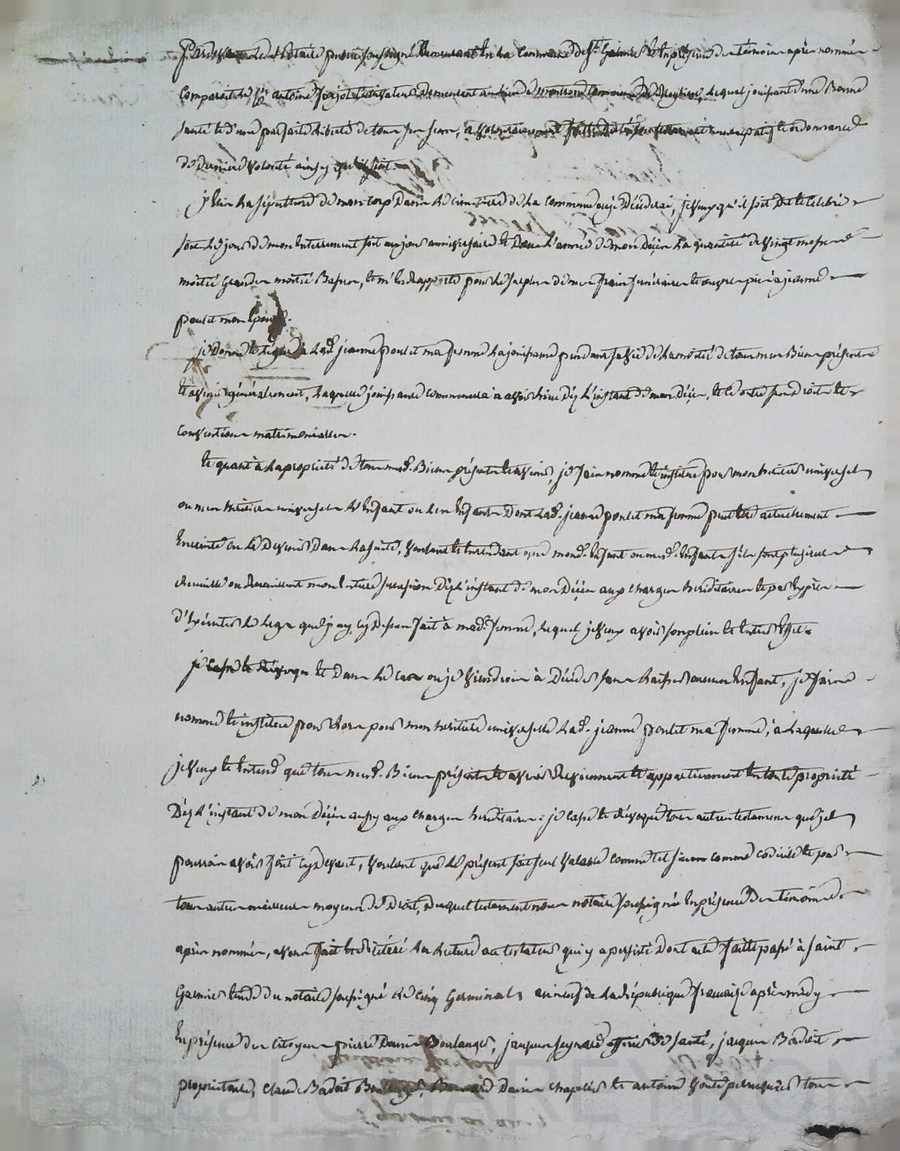 Pardevant le Notaire public soussigné Recevant en la Commune de St. Galmier et en présence des témoins après nommés
Comparait le Cn. antoine demeurant au lieu de lequel jouissant d'une Bonne
santé et d'une parfaite liberté de tous ses sens, a volontairement fait et ordonnance
de dernière volonté ainsy qu'il suit.
j'Elis la sépulture de mon corps Dans le cimetière de la commune ou je Décéderai, je veux qu'il soit Dit et célébré
soit le jour de mon Enterrement soit au jour anniversaire et Dans L'année de mon Décès la quantité de vingt messes
moitié Grandes moitié Basses, et m'En Rapporte pour le surplus de mes frais funéraires et œuvres pies à jeanne
poulet mon Epouse.
je Donne et Lègue à Lad. jeanne poulet ma femme La jouissance pendant sa vie de la moitié de tous mes Biens présents
et avenir généralement, Laquelle jouissance commencera à avoir lieu Dès L'instant de mon Décès, et ce outre ses droits et
conventions matrimoniales.
Et quant à La propriété de tous mesd. Biens présents et avenir, je fais nomme et institue pour mon héritier universel
ou mes héritiers universels L'Enfant ou Les Enfants Dont Lad. jeanne poulet ma femme peut être actuellement
Enceinte ou Le Devenir Dans La suite, voulant et Entendant que mond. Enfant ou mesd. Enfants s'ils sont plusieurs
recueille ou Recueillent mon Entière succession Dès L'instant de mon Décès aux charges héréditaires et par Exprès
d'Exécuter Le Legs que j'ay cy Dessus fait à mad. femme, Lequel je veux avoir son plein et Entier Effet.
je casse et Révoque et Dans Le cas ou je viendrois à Décéder sans Laisser aucuns Enfants, je fais
nomme et institue pour Lors pour mon héritière universelle Lad. jeanne poulet ma femme, à Laquelle
je veux et Entend que tous mesd. Biens présents et avenir Reviennent et appartiennent En toute propriété
Dès L'instant de mon Décès aussy aux charges héréditaires: je casse et révoque tous autres testaments que je
pourrois avoir fait cy devant, voulant que Le présent soit seul valable comme tel sinon comme codicile et par
tous autres meilleurs moyens de Droit, Duquel testament nous notaire soussigné En présence des témoins
après nommés, avons fait et Réitéré La Lecture au testateur qui y a persisté Dont acte fait et passé à Saint
Galmier Etude du notaire soussigné Le cinq Germinal, an neuf de La République française après midy
En présence des Citoyens pierre Boulanger, jacques officier de santé, jacques Badoit
propriétaire, Claude Badoit chapelier et antoine perruquier tous